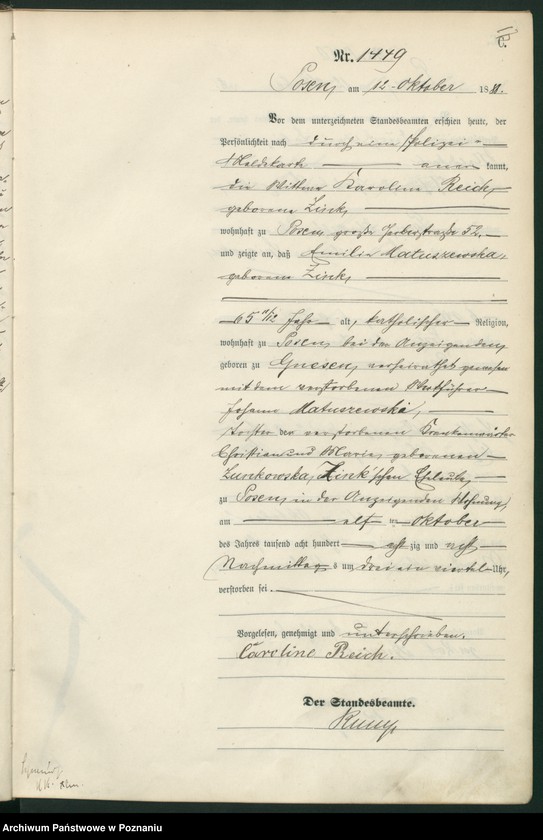 Nr. 1449
Posen, am 12. Oktober 1881.
Vor dem unterzeichneten Standesbeamten erschien heute, der
Persönlichkeit nach durch eine Polizei-
Meldekarte anerkannt,
die Wittwe Karoline Reich,
geborene Zink,
wohnhaft zu Posen große Gerberstraße 52,
und zeigte an, daß Emilie Matuszewska,
geborene Zink,
65 Jahr alt, katholischer Religion,
wohnhaft zu Posen bei der Anzeigenden,
geboren zu Gnesen, verheirathet gewesen
mit dem verstorbenen
Johann Matuszewski,
Tochter der verstorbenen Krankenwärter
Christian und Marie, geborenen
Zurkowska, Zink'schen Eheleute,
zu Posen, in der Anzeigenden Wohnung,
am elf ten Oktober
des Jahres tausend acht hundert achtzig und
Nachmittags um drei ein viertel Uhr,
verstorben sei.
Vorgelesen, genehmigt und unterschrieben.
Caroline Reich.
Der Standesbeamte.
Archiwum Państwowe w Poznaniu